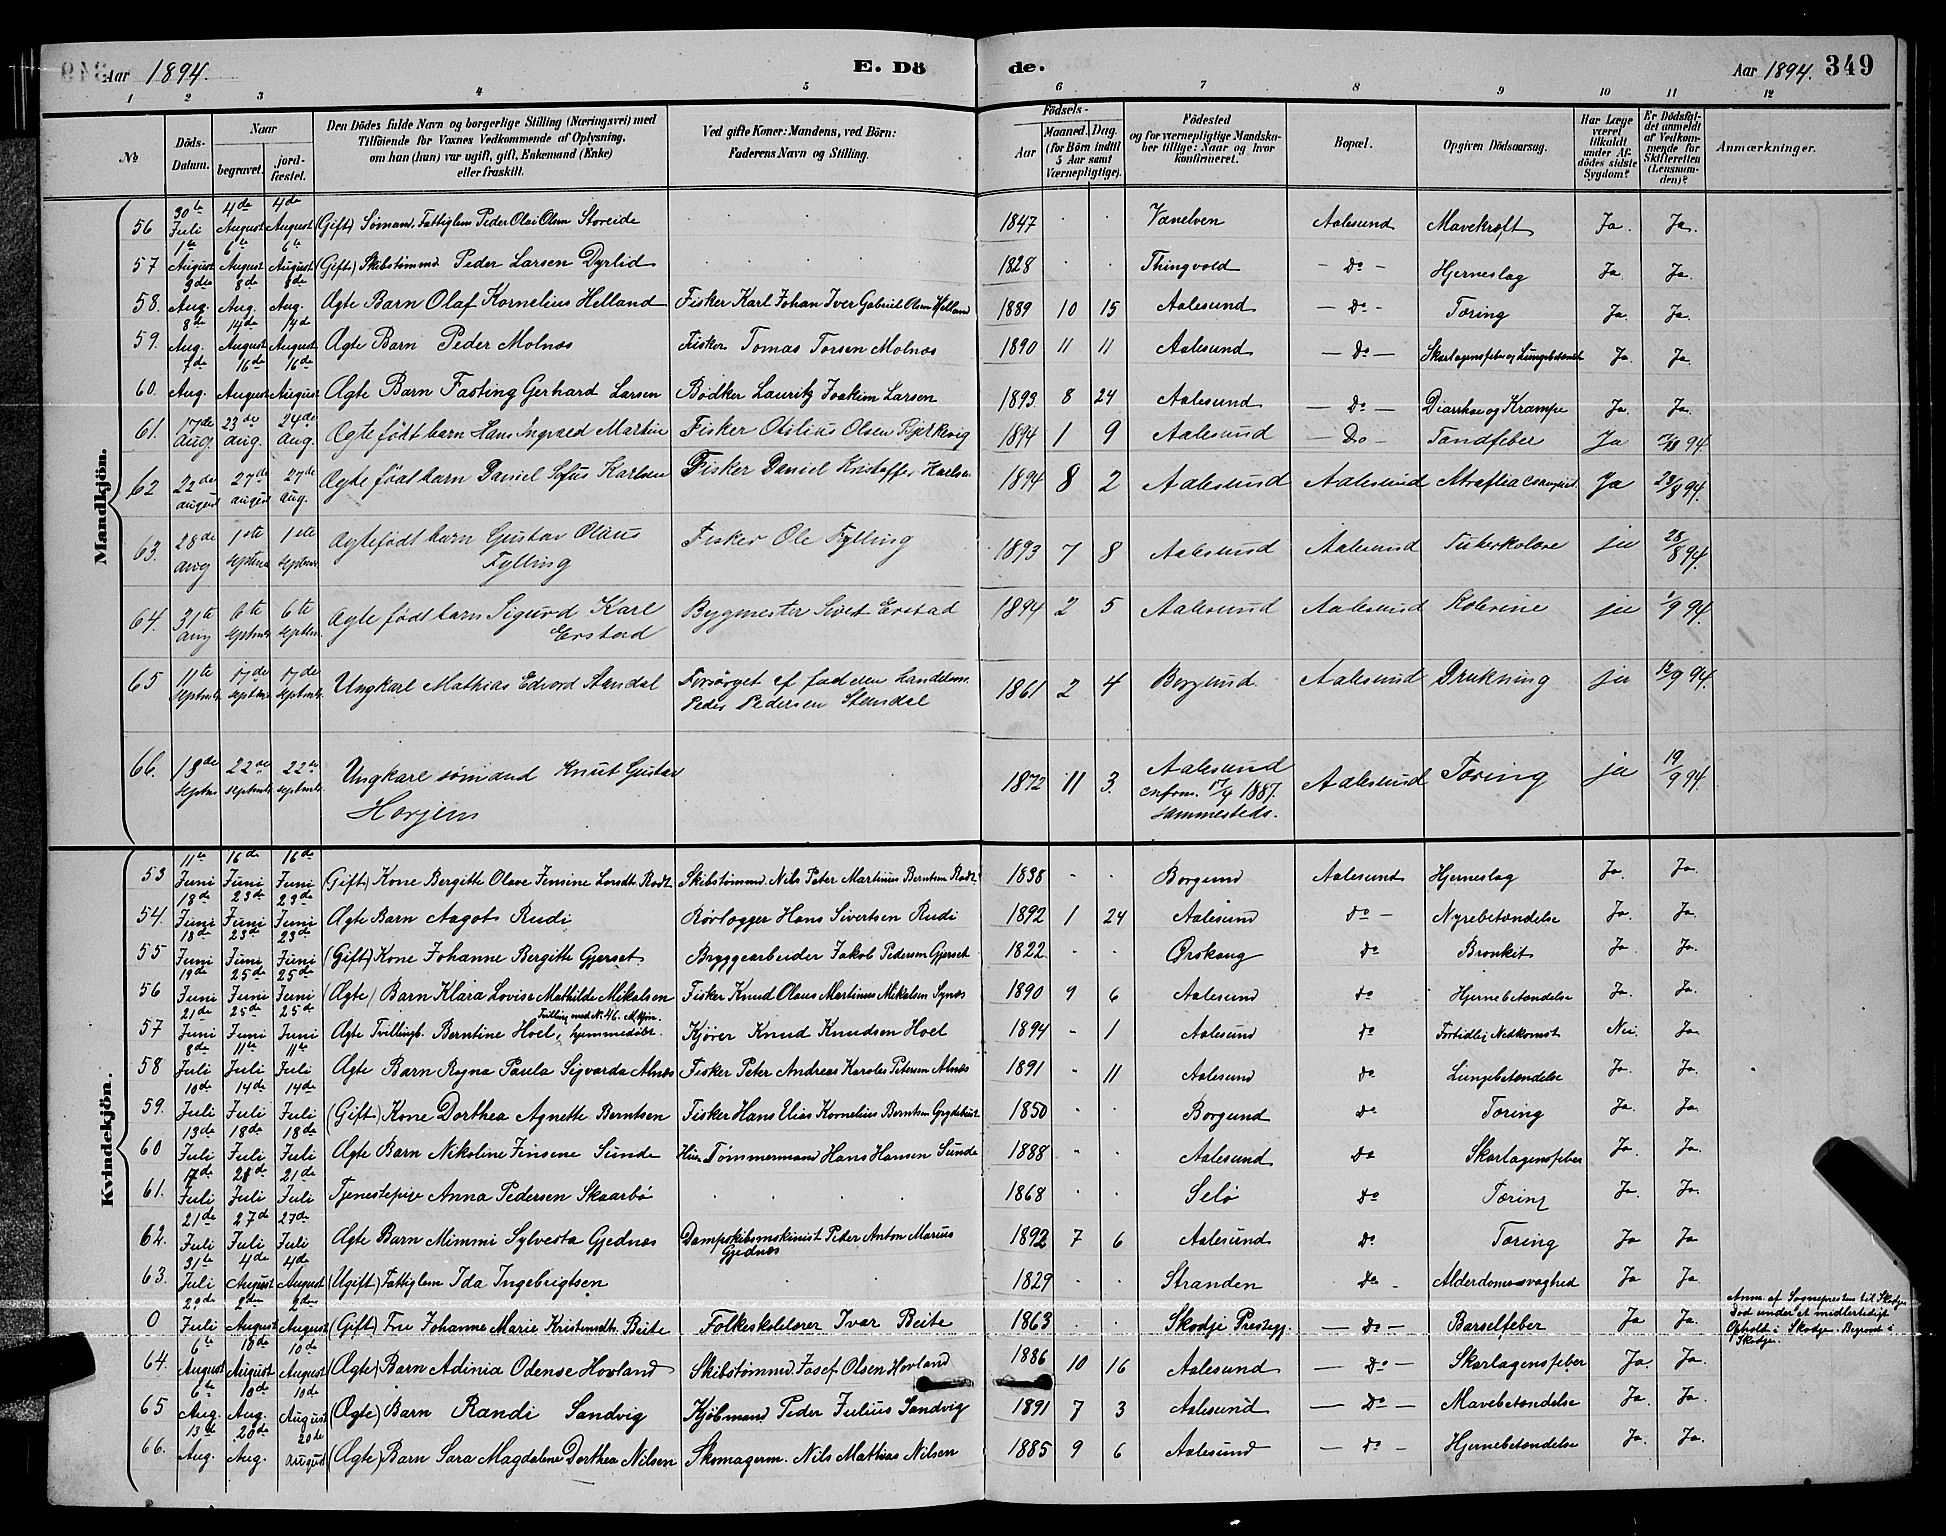 Aar 1894. E. Dö de. Aar 1894. 349
1 2 3 4 5 6 7 8 9 10 11 12
No
Döds-Datum.
Naar begravet. jord-fæstet.
Den Dödes fulde Navn og borgerlige Stilling (Næringsvei) med
Tilföiende for Voxnes Vedkommende af Oplysning,
om han (hun) var ugift, gift, Enkemand (Enke)
eller fraskilt.
Ved gifte Koner: Mandens, ved Börn:
Faderens Navn og Stilling.
Födsels-
Aar Maaned. Dag.
(for Börn indtil
5 Aar samt
Værnepligtige).
Födested
og for værnepligtige Mandska-
ber tillige: Naar og hvor
konfirmeret.
Bopæl.
Opgiven Dödsaarsag.
Har Læge
været
tilkaldt
under Af-
dödes sidste
Sygdom?
Er Dödsfal-
det anmeldt
af Vedkom-
mende for
Skifteretten
(Lensman-
den)?
Anmærkninger.
Mandkjön.
56 30te Juli 4de August 4de August (Gift) Sömand, Fattiglem Peder Olai Olsen Storeide 1847 Vanelven Aalesund Mavekræft Ja. Ja.
57 1te August 6te August 6te August (Gift) Skibstømmd Peder Larsen Dyrlid 1828 Thingvold Do Hjerneslag Ja Ja.
58. 3die Aug. 8de Aug. 8de Aug. Ægte Barn Olaf Kornelius Helland Fisker Karl Johan Iver Gabriel Olsen Helland 1889 10 15 Aalesund Do Tæring Ja. Ja.
59. 8de Aug. 14de August 14de August Ægte Barn Peder Molnæs Fisker Tomas Torsen Molnæs 1890 11 11 Aalesund Do Skarlagensfeber og Lungebetændelse Ja. Ja.
60. 7de Aug. 16de August 16de August Ægte Barn Fasting Gerhard Larsen Bødker Lauritz Joakim Larsen 1893 8 24 Aalesund Do Diarrhoe og Krampe Ja. Ja.
61. 17de Aug 23de aug. 24de Aug. Ægte født barn Hans Ingvald Martin Fisker Otilius Olsen Bjerkevig 1894 1 9 Aalesund Do Tandfeber Ja 94.
62 22de august 27de august 27de aug. Ægte född barn Daniel Sofus Karlsen Fisker Daniel Kristoffer Karlsen 1894 8 2 Aalesund Aalesund Atraflia Ja 23/8 94.
63. 28de aug 1ste septem 1ste septem Ægtefødt barn Gustav Olaus
Fylling Fisker Ole Fylling 1893 7 8 Aalesund Aalesund Tuberkolose ja 28/8 94.
64. 31te aug 6te septem 6te septem Ægte født barn Sigurd Karl
Erstad Bygmester Sivert Erstad 1894 2 5 Aalesund Aalesund Kolerine ja 1/9 94.
65 11te septemb 17de septemb 17de septemb Ungkarl Mathias Edvard Stensdal Forsørget af faderen handelsm.
Peder Pedersen Stensdal 1861 2 4 Borgund Aalesund Drukning ja 12/9 94.
66. 18de septem 22de septemb 22de septemb Ungkarl sømand Knut Gustav
Horjem 1872 11 3. Aalesund
confirm. 17/4 1887.
sammesteds. Aalesund Tæring ja 19/9 94.
Kvindekjön.
53 11te Juni 16de Juni 16de Juni (Gift) Kone Bergitte Olave Jensine Larsdt. Rødt Skibstømmd. Nils Peter Martinus Berntsen Rødt 1838 Borgund Aalesund Hjerneslag Ja. Ja.
54. 18de Juni 23de Juni 23de Juni Ægte Barn Aagot Rudi Rørlægger Hans Sivertsen Rudi 1892 1 24 Aalesund Do Nyrebetændelse Ja. Ja.
55 18de Juni 23de Juni 23de Juni (Gift) Kone Johanne Bergitte Gjerset Bryggearbeider Jakob Pedersen Gjerset 1822 Ørskoug Do Bronkit Ja. Ja.
56 19de Juni 25de Juni 25de Juni (Ægte) Barn Klara Lovise Mathilde Mikalsen Fisker Knud Olaus Martinus Mikalsen Synæs 1890 9 6 Aalesund Do Hjernebetændelse Ja. Ja.
57 21de Juni 25de Juni 25de Juni Ægte Tvillingb. Berntine Hoel, hjemmedøbt. Tvilling med N. 46. M. kjøn. Kjører Knud Knudsen Hoel 1894 1 Aalesund Do Fortidlig Nedkomst Nei Ja.
58 8de Juli 11te Juli 11te Juli Ægte Barn Ragna Paula Sigvarda Alnæs Fisker Peter Andreas Karoles Petersen Alnæs 1891 11 Aalesund Do Lungebetændelse Ja. Ja.
59. 10de Juli 14de Juli 14de Juli (Gift) Kone Dorthea Agnette Berntsen Fisker Hans Elias Kornelius Berntsen 1850 Borgund Do Tæring Ja. Ja.
60 13de Juli 18de Juli 18de Juli Ægte Barn Nikoline Jensene Sunde Tømmermand Hans Hansen Sunde 1888 Aalesund Do Skarlagensfeber Ja. Ja.
61. 17de Juli 28de Juli 21de Juli Tjenestepige Anna Pedersen Skaarbø 1868 Selö Do Tæring Ja. Ja.
62. 21de Juli 27de Juli 27de Juli Ægte Barn Mimmi Sylvesta Gjednæs Dampskibsmskinist Peder Anton Marius
Gjednæs 1892 7 6 Aalesund Do Tæring Ja Ja
63. 31te Juli 4de August 4de August (Ugift) Fattiglem Ida Ingebrigtsen 1829 Stranden Do Alderdomssvaghed Ja Ja
0 29de Juli 2den August 2den August (Gift) Fru Johanne Marie Kristensdt. Beite Folkeskolelærer Ivar Beite 1863 Skodje Prestegj. Do Barselfeber Ja Ja. Anm. af Sognepresten til Skodje
Død under et midlertidigt
Ophold i Skodje. Begravet i
Skodje.
64. 6te August 10de August 10de August (Ægte) Barn Adinia Odense Hovland Skibstømmd. Josef Olsen Hovland 1886 10 16 Aalesund Do Skarlagensfeber Ja. Ja.
65 6te Aug. 10de Aug. 10de August (Ægte) Barn Randi Sandvig Kjøbmand Peder Julius Sandvig 1891 7 3 Aalesund Do Mavebetændelse Ja. Ja.
66. 13de Aug. 20de Aug. 20de august (Ægte) Barn Sara Magdalene Dorthea Nilsen Skomagerm. Nils Mathias Nilsen 1885 9 6 Aalesund Do Hjernebetændelse Ja. Ja.